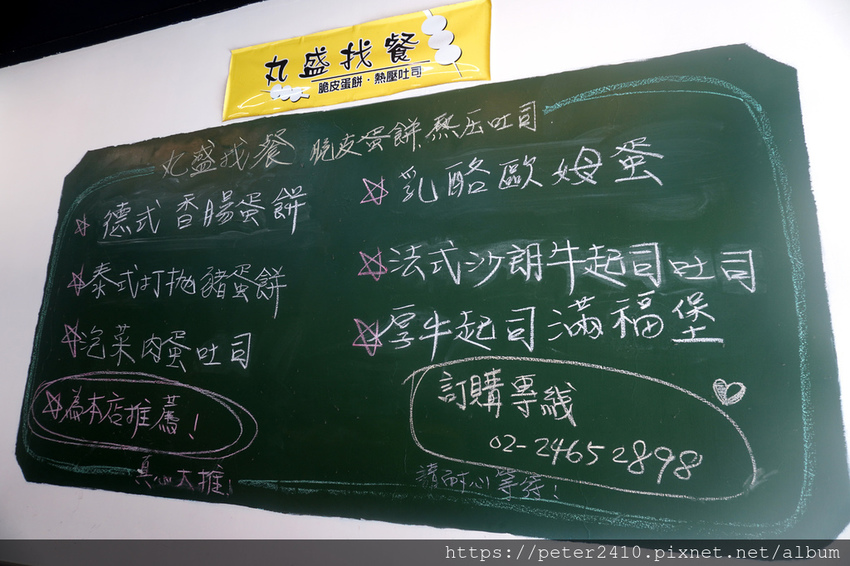 丸盛找餐
脆皮蛋餅・熱壓吐司
丸盛找餐 脆皮蛋餅.熱压吐司
☆德式香腸蛋餅
☆泰式打拋豬蛋餅
☆泡菜肉蛋吐司
☆為本店推薦!
真心大推!
☆乳酪歐姆蛋
☆法式沙朗牛起司吐司
☆厚牛起司滿福堡
訂購專線
02-24652898
請耐心等待!
https://peter2410.pixnet.net/album